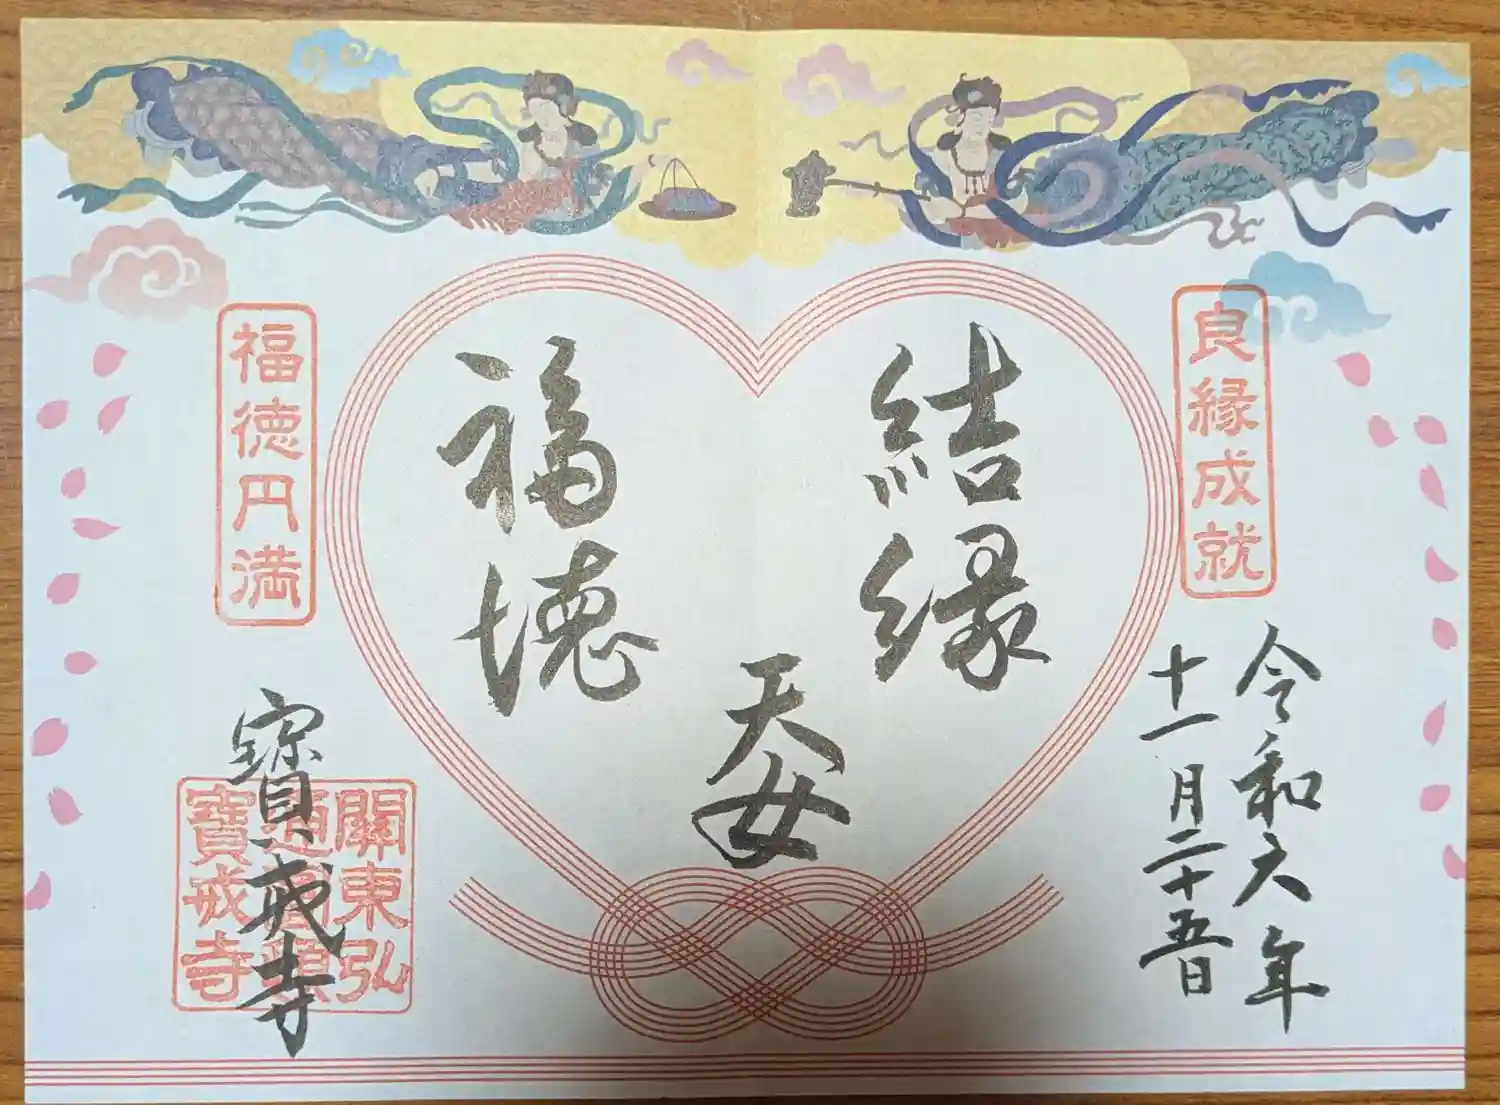 良縁成就
令和六年
十一月二十五日
結縁
天女
福徳
福徳円満
寳戒寺
關東弘
寳戒寺